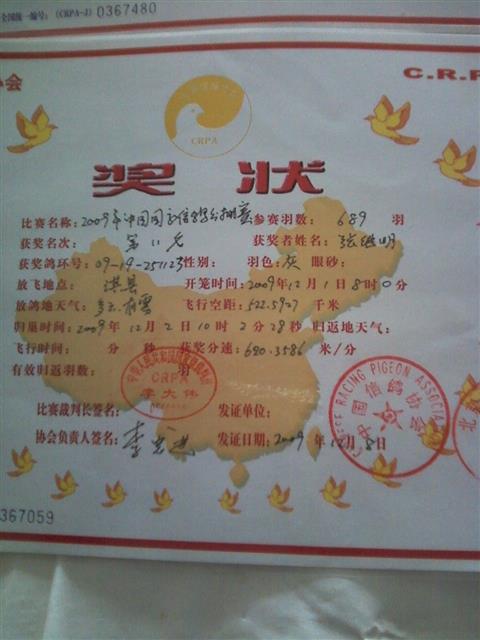 全国统一编号:（CRPA-J）0367480
办会
C.R.P
CRPA
奖 状
比赛名称: 2009年中国国家信鸽 参赛羽数: 689 羽
获奖名次: 第11名 获奖者姓名: 张继明
获奖鸽环号: 09-19-251123 性别: 羽色: 灰 眼砂:
放飞地点: 淇县 开笼时间: 2009年12月1日8时0分
放鸽地天气: 多云有雾 飞行空距: 522.5927 千米
归巢时间: 2009年12月2日10时2分28秒 归返地天气:
飞行时间: 分 秒 获奖分速: 680.3586 米/分
有效归返羽数: 羽
CRPA
李大伟
比赛裁判长签名: 发证单位:
协会负责人签名: 发证日期: 2009年12月8日
RACING PIGEON ASSOCIA
中国信鸽协会
北
0367059